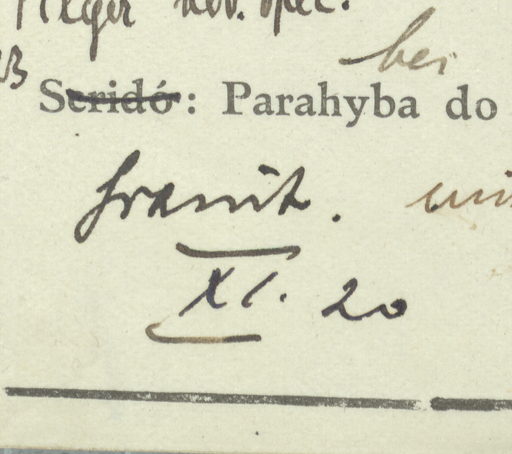 nov. spec.
bei
Seridó : Parahyba do
Granit.
XI. 20